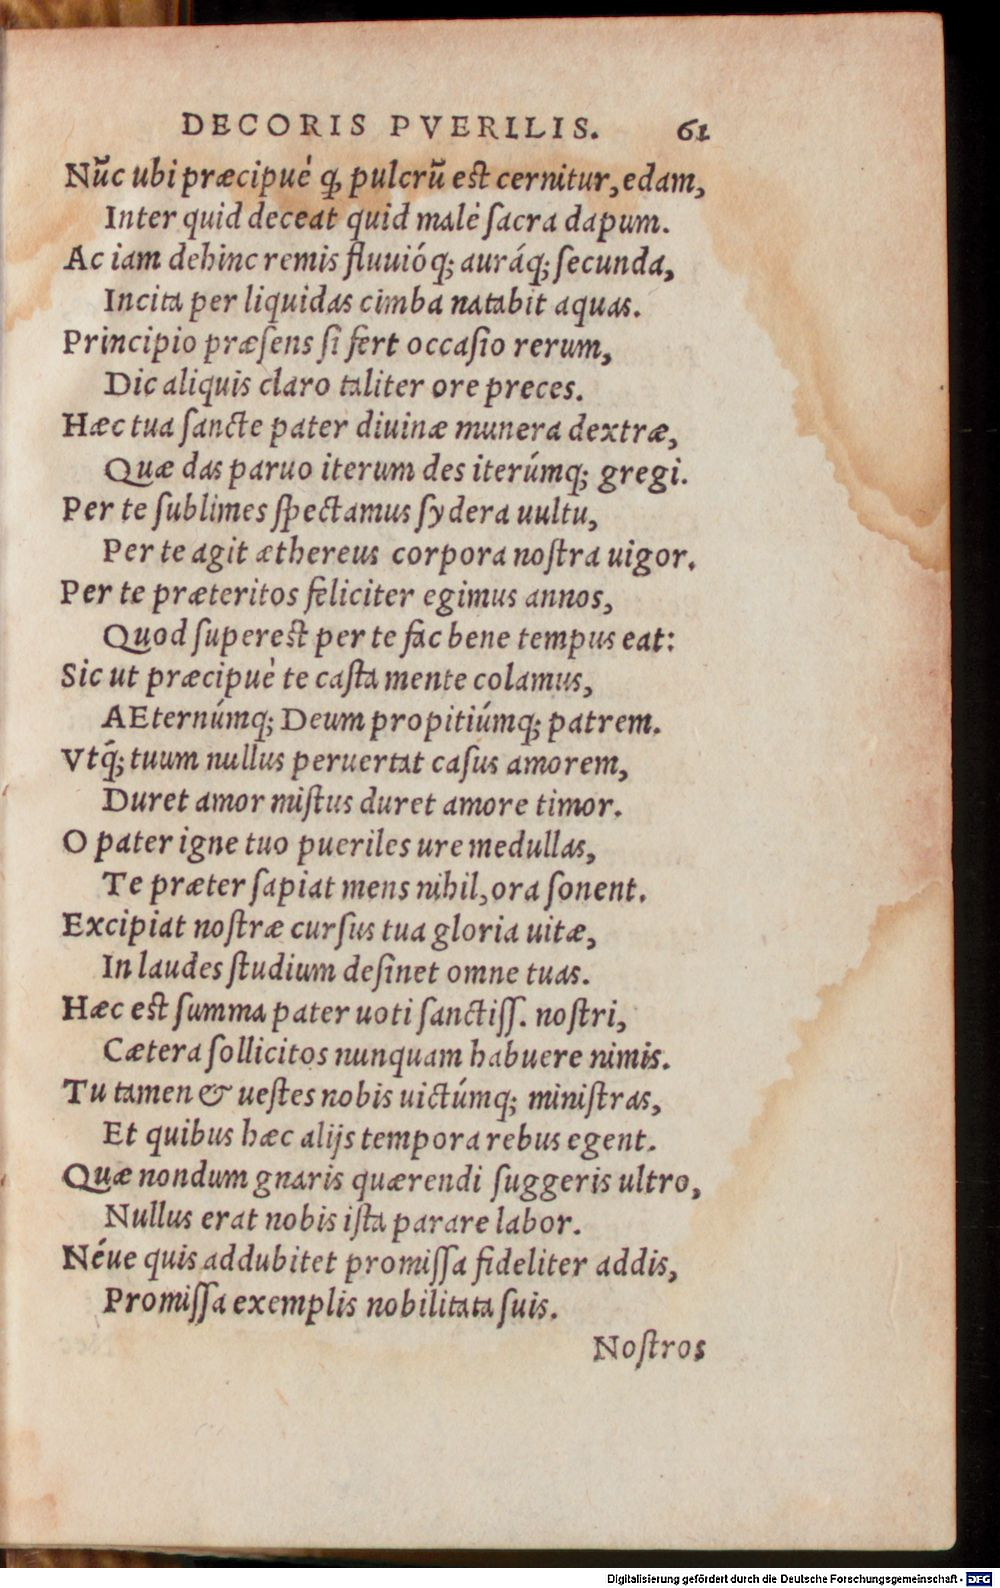 DECORIS PVERILIS. 61
Nūc ubi præcipuè q̃ pulcrū est cernitur, edam,
Inter quid deceat quid malè ſacra dapum.
Ac iam dehinc remis fluuióq; auráq; ſecunda,
Incita per liquidas cimba natabit aquas.
Principio præſens ſi fert occaſio rerum,
Dic aliquis claro taliter ore preces.
Hæc tua ſancte pater diuinæ munera dextræ,
Quæ das paruo iterum des iterúmq; gregi.
Per te ſublimes ſpectamus ſydera uultu,
Per te agit æthereus corpora noſtra uigor.
Per te præteritos feliciter egimus annos,
Quod ſupereſt per te fac bene tempus eat:
Sic ut præcipuè te caſta mente colamus,
AEternúmq; Deum propitiúmq; patrem.
Vtq́; tuum nullus peruertat caſus amorem,
Duret amor miſtus duret amore timor.
O pater igne tuo pueriles ure medullas,
Te præter ſapiat mens nihil, ora ſonent.
Excipiat noſtræ curſus tua gloria uitæ,
In laudes ſtudium deſinet omne tuas.
Hæc eſt ſumma pater uoti ſanctiſſ. noſtri,
Cætera ſollicitos nunquam habuere nimis.
Tu tamen & ueſtes nobis uictúmq; miniſtras,
Et quibus hæc alijs tempora rebus egent.
Quæ nondum gnaris quærendi ſuggeris ultro,
Nullus erat nobis iſta parare labor.
Néue quis addubitet promiſſa fideliter addis,
Promiſſa exemplis nobilitata ſuis.
Noſtros
Digitalisierung gefördert durch die Deutsche Forschungsgemeinschaft - DFG